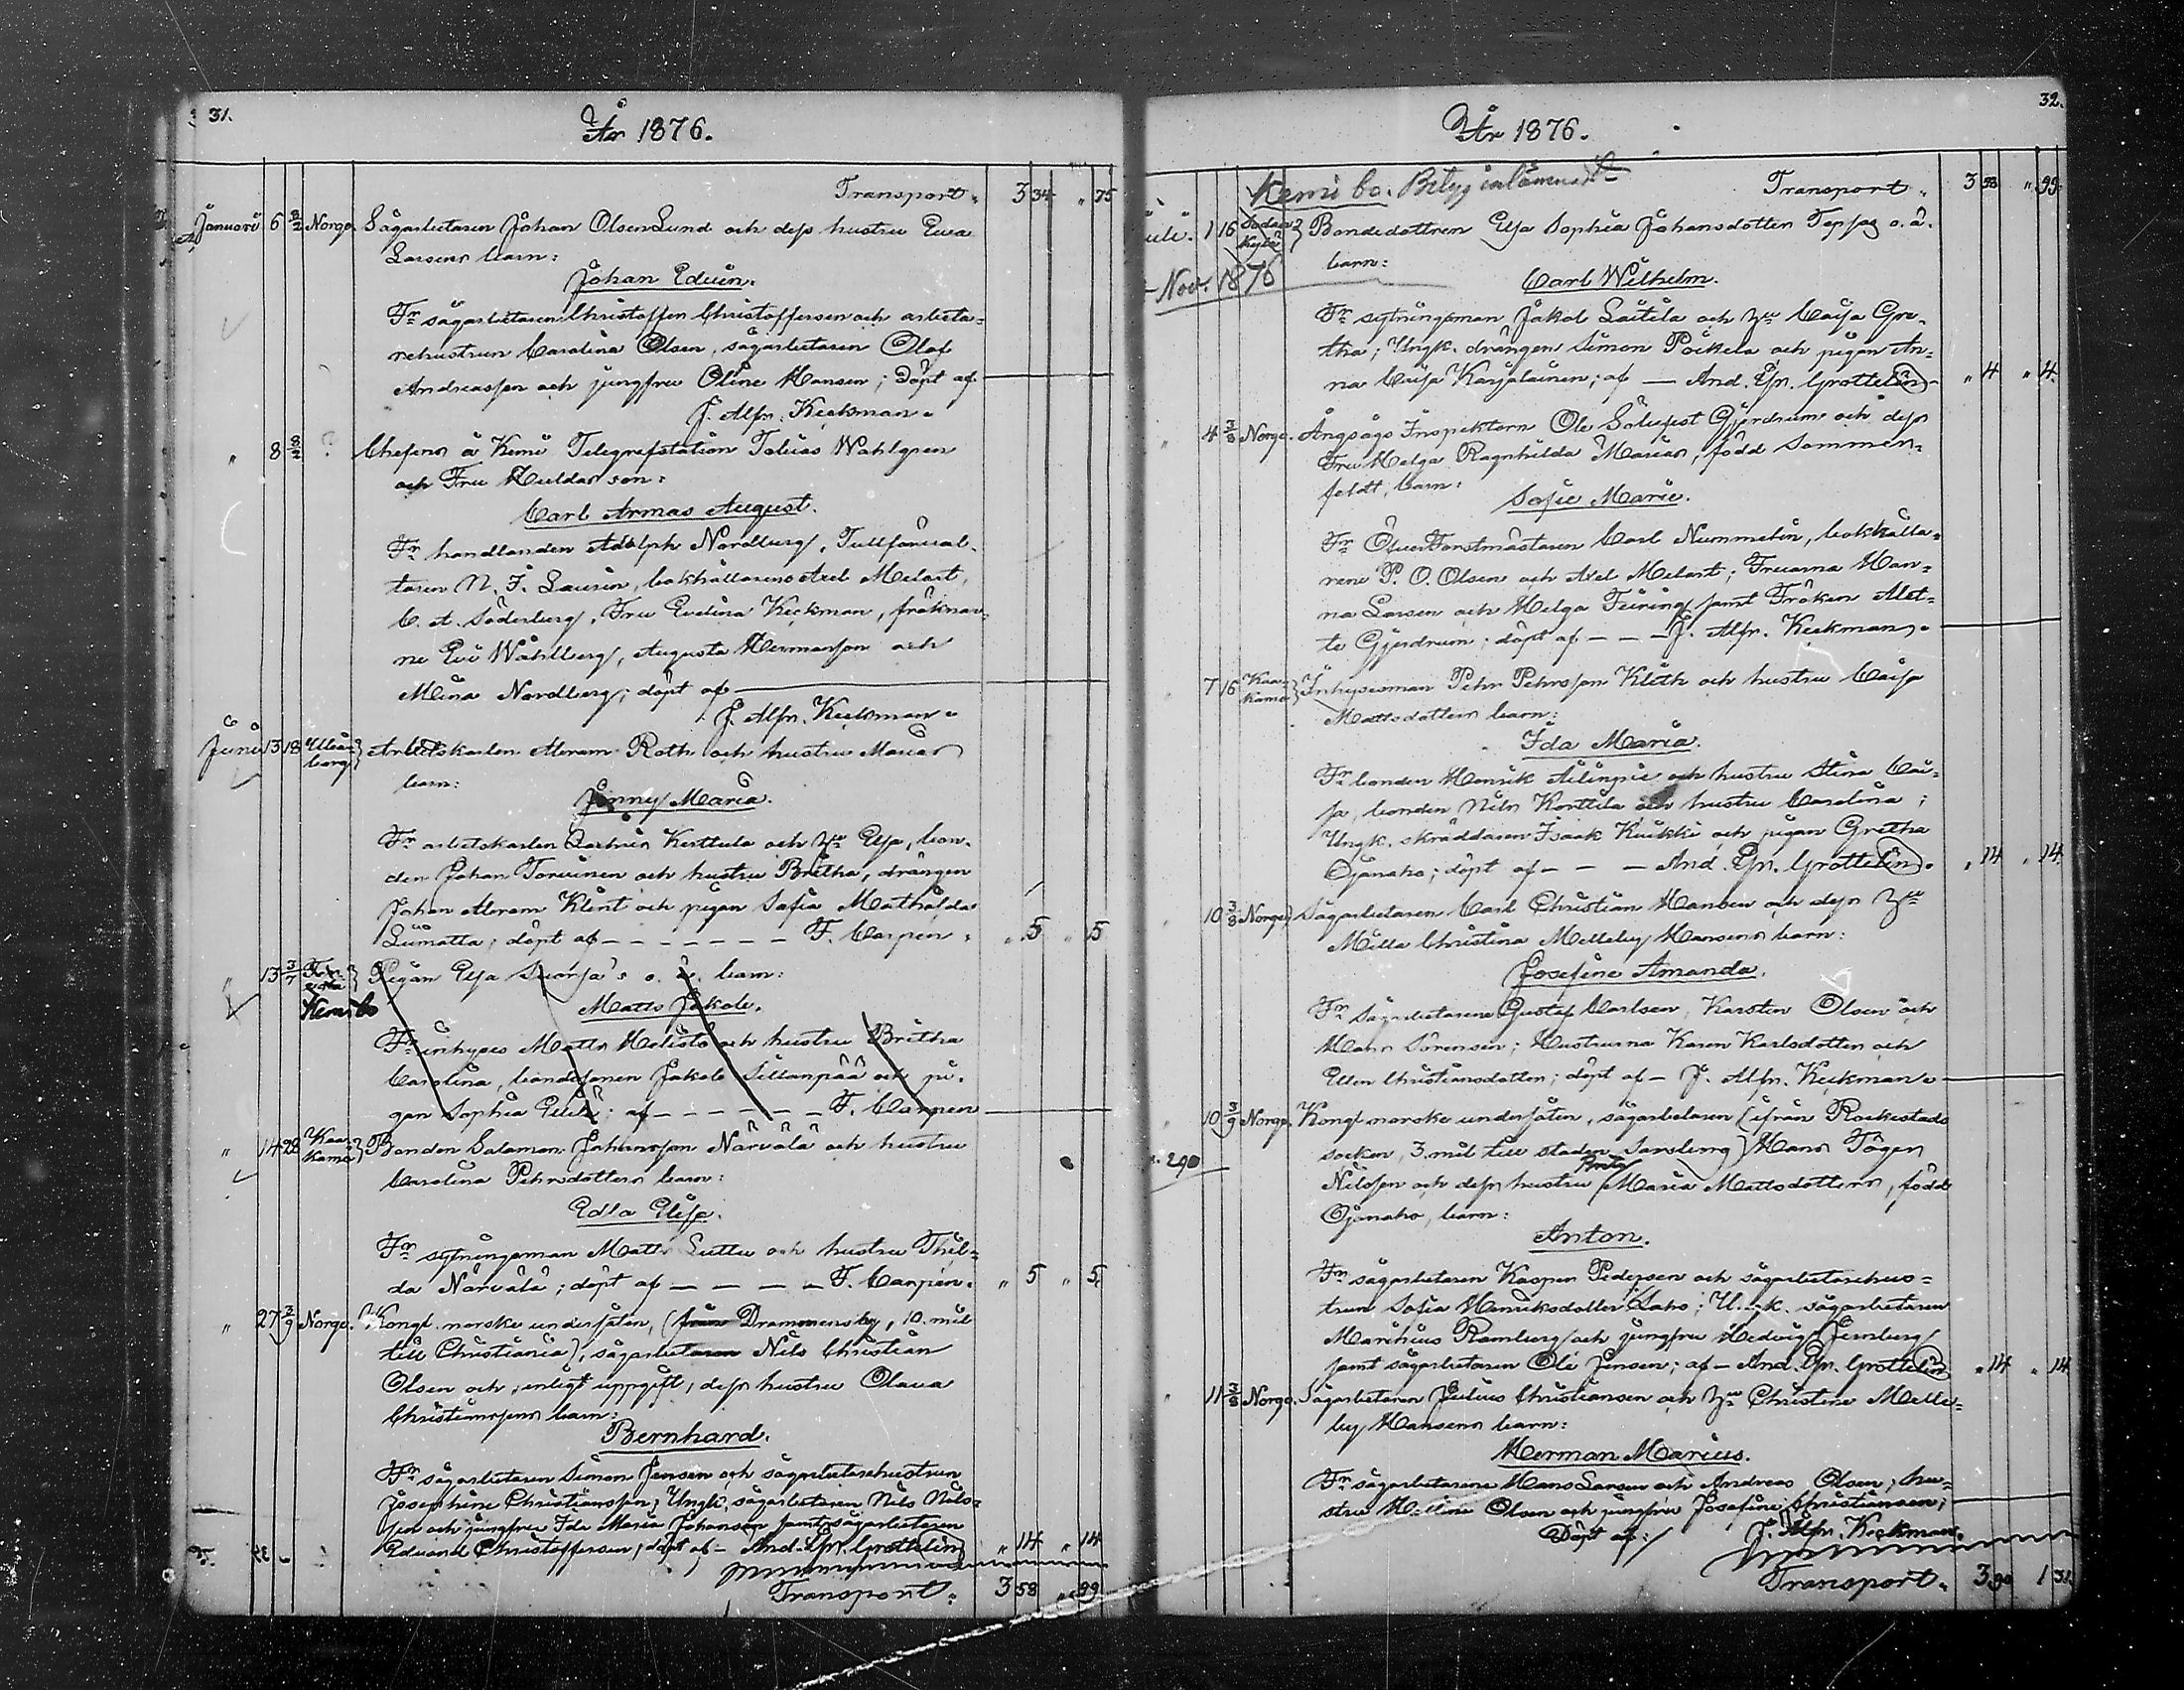 31.
År 1876.
Transport. 3 34 " 75
Januari 6 8/2 Norge. Sågarbetaren Johan Olsen Lund och dess hustru Eva
Larsens barn:
Johan Edvin.
Fr sågarbetaren Christoffer Christoffersen och arbeta-
rehustrun Carolina Olsen, sågarbetaren Olaf
Andreassen och jungfru Oline Hansen; döpt af
J. Alfr. Keckman.
" 8 8/2 ? Chefens å Kemi Telegrafstation Tobias Wahlgren
och Fru Huldas son:
Carl Armas August.
Fr handlanden Adolph Nordberg, Tullförval-
taren N. F. Laurin, bokhållarene Axel Melart,
C. A. Söderberg, Fru Evelina Keckman, fröknar-
ne Evi Wahlberg, Augusta Hermanson och
Mina Nordberg; döpt af
J. Alfr. Keckman.
Juni 13 18 Uleå-
borg } Arbetskarlen Abram Roth och hustru Marias
barn:
Jenny Maria.
Fr arbetskarlen Kerttula och Hu Elsa, bon-
den Johan Torvinen och hustru Britha, drängen
Johan Abram Klint och pigan Sofia Mathilda
Liimatta; döpt af — — — F. Carpén. " 5 " 5
" 13 3/7 Pigan Elsa o. ä. barn:
Kemi lo Matts Jakob.
Fr inhyses Matts och hustru Britha
Carolina, bondesonen Jakob Sillanpää och pi-
gan Sophia af — — — F. Carpén
" 14 28 Kaa-
kama } Bonden Salomon Johansson Närvälä och hustru
Carolina Pehrsdotters barn:
Edla Elisa.
Fr sytningsman Matts Luttu och hustru Thil-
da Närvälä; döpt af — — — F. Carpén. " 5 " 5.
" 27 3/9 Norge. Kongl. norske undersåten, (från Drammensby, 10. mil
till Christiania), sågarbetaren Nils Christian
Olsen och, enligt uppgift, dess hustru Olava
Christianssens barn:
Bernhard.
Fr sågarbetaren Simon Jensen och sågarbetarehustrun
Josephine Christianssen; Ungk. sågarbetaren Nils Nils-
sen och jungfru Ida Maria Johansen samt sågarbetaren
Edvard Christoffersen; döpt af — And. Gr. Grottelin " 14 " 14
Transport. 3 58 " 99
32.
År 1876.
Kemi lo. Betyg inlämnadt
Transport. 3 58 " 99.
Juli. 1 16 Sodan-
kylä } Bondedottren Elsa Sophia Johansdotter o. ä.
barn:
Nov. 1876
Carl Wilhelm.
Fr sytningsman Jakob Laitila och Hu Caisa Gre-
tha; Ungk. drängen Simon Pöckelä och pigan An-
na Caisa Karjalainen; af — And. Gr. Grottelin " 4 " 4.
" 4 3/8 Norge. Ångsågs Inspektorn Ole Gjerdrum och dess
Fru Helga Ragnhilda Marias, född Sommer-
feldt, barn:
Sofie Marie.
Fr Öfverforstmästaren Carl Nummelin, bokhålla-
rene P. O. Olsen och Axel Melart; Fruarna Han-
na Larsen och Helga Feiring samt Fröken Alet-
te Gjerdrum; döpt af — — — J. Alfr. Keckman.
" 7 16 Kaa-
kama } Inhysesman Pehr Pehrsson Kleth och hustru Caisa
Mattsdotters barn:
Ida Maria.
Fr bonden Henrik Ailinpie och hustru Stina Cai-
sa, bonden Nils Korttila och hustru Carolina;
Ungk. skräddaren Isaak Kuikki och pigan Gretha
Ojanaho; döpt af — — — And. Gr. Grottelin. " 14 " 14.
" 10 3/8 Norge } Sågarbetaren Carl Christian Hansen och dess Hu
Milla Christina Melleby Hansens barn:
Josefine Amanda.
Fr sågarbetarene Gustaf Carlsen, Karsten Olsen och
Hans Sörensen; Hustrurna Karen Karlsdotter och
Ellen Christiansdotter; döpt af — J. Alfr. Keckman.
" 10 3/9 Norge. Kongl norske undersåten, sågarbetaren (ifrån Rockestads
socken, 3. mil till staden Sarsborg) Hans Tögen
Nilssen och dess hustru Brita Maria Mattsdotters, född
Ojanaho, barn:
p. 290
Anton.
Fr sågarbetaren Kasper Pedersen och sågarbetarehus-
trun Sofia Henriksdotter Laho; Ungk. sågarbetaren
Marinius Ramberg och jungfru Hedvig Jernberg
samt sågarbetaren Ole Jensen; af — And. Gr. Grottelin " 14 " 14.
" 11 3/8 Norge. Sågarbetaren Julius Christiansen och Hu Christine Melle-
by Hansens barn:
Herman Marius.
Fr sågarbetarene Hans Larsen och Andreas Olsen; hu-
stru Olsen och jungfru Josefine Christiansen;
Döpt af: J. Alfr. Keckman.
Transport. 3 90 1 31.